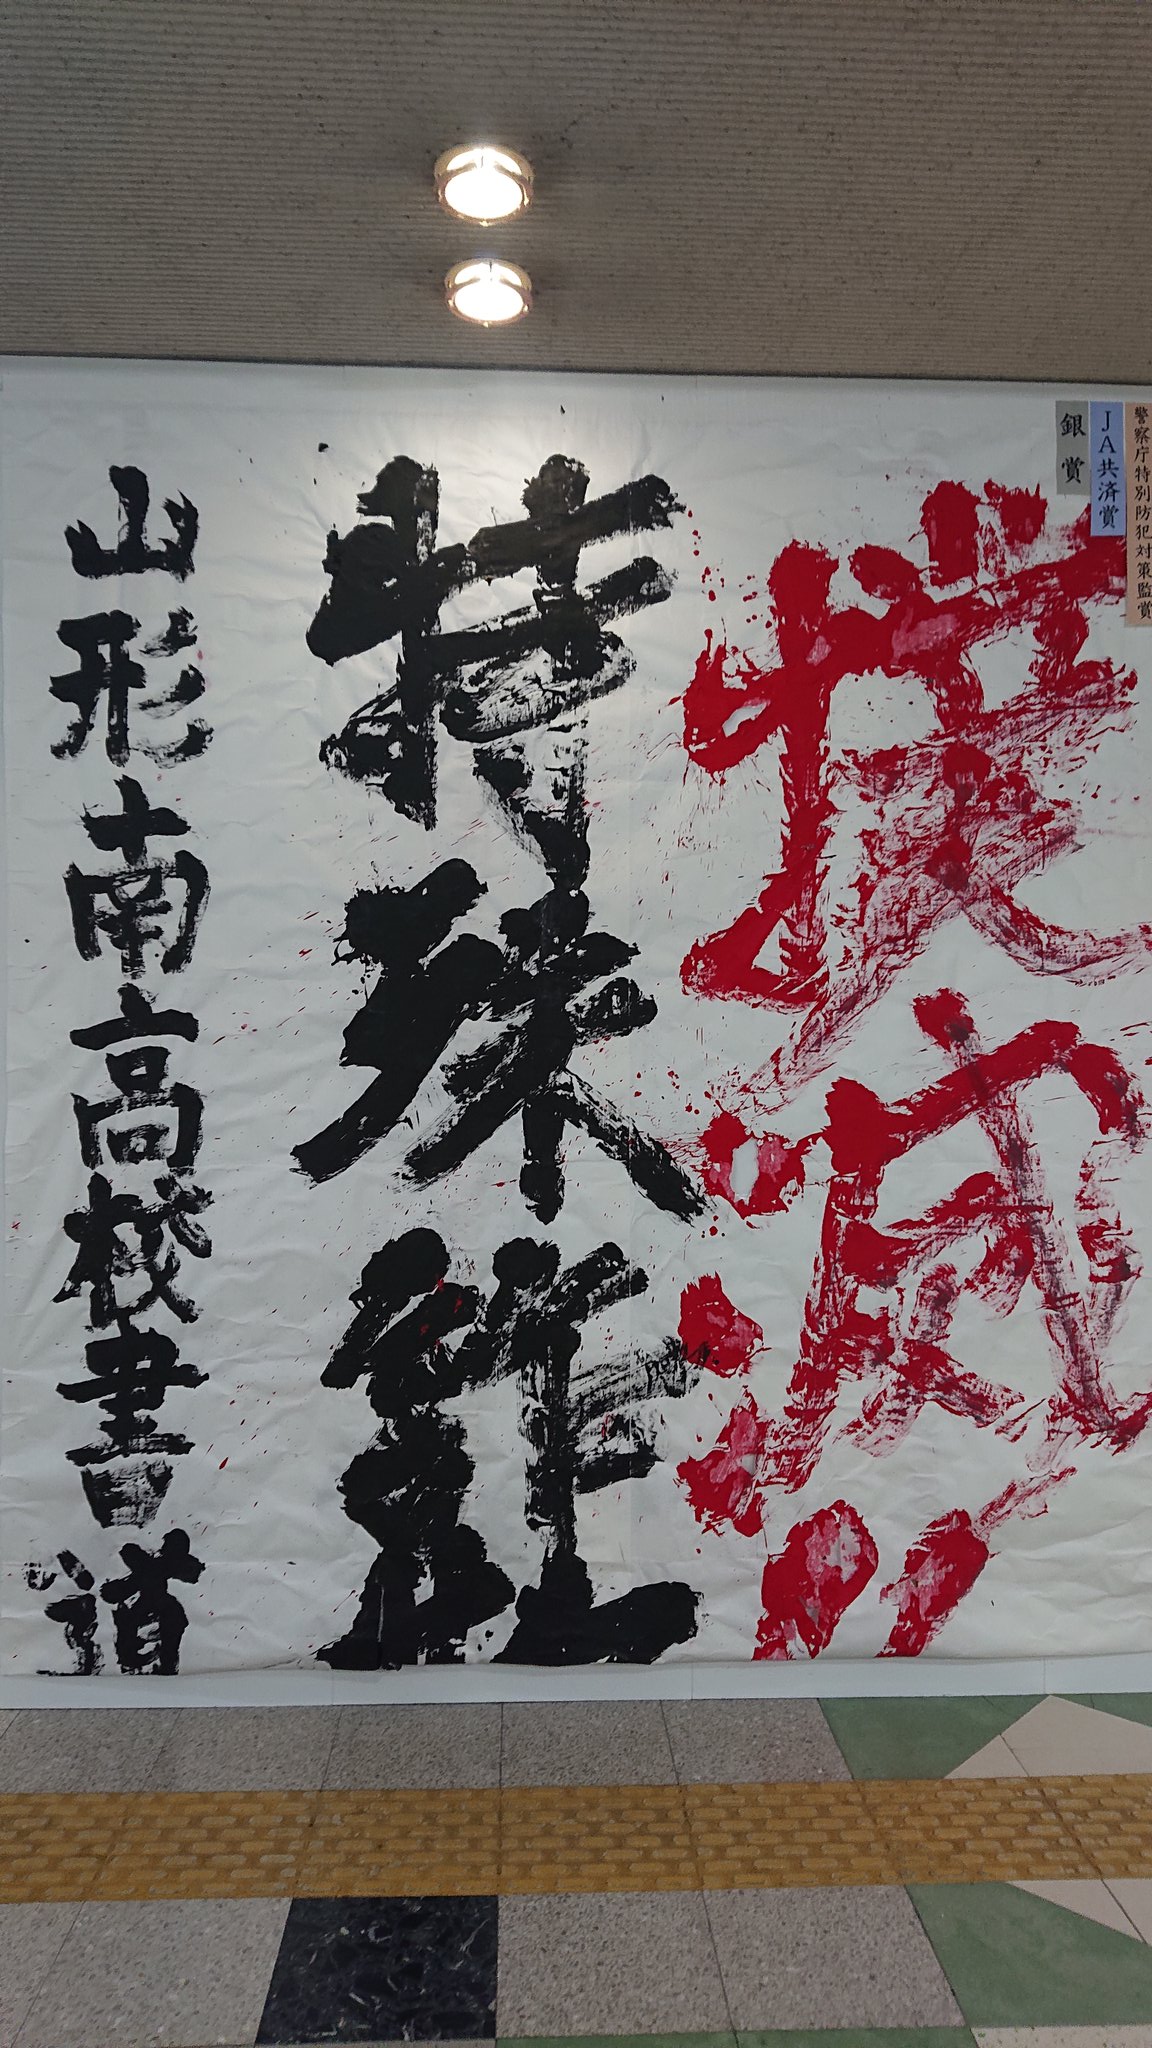 警察庁特別防犯対策監賞
JA共済賞
銀賞
撲滅!!
特殊詐
山形南高校書道